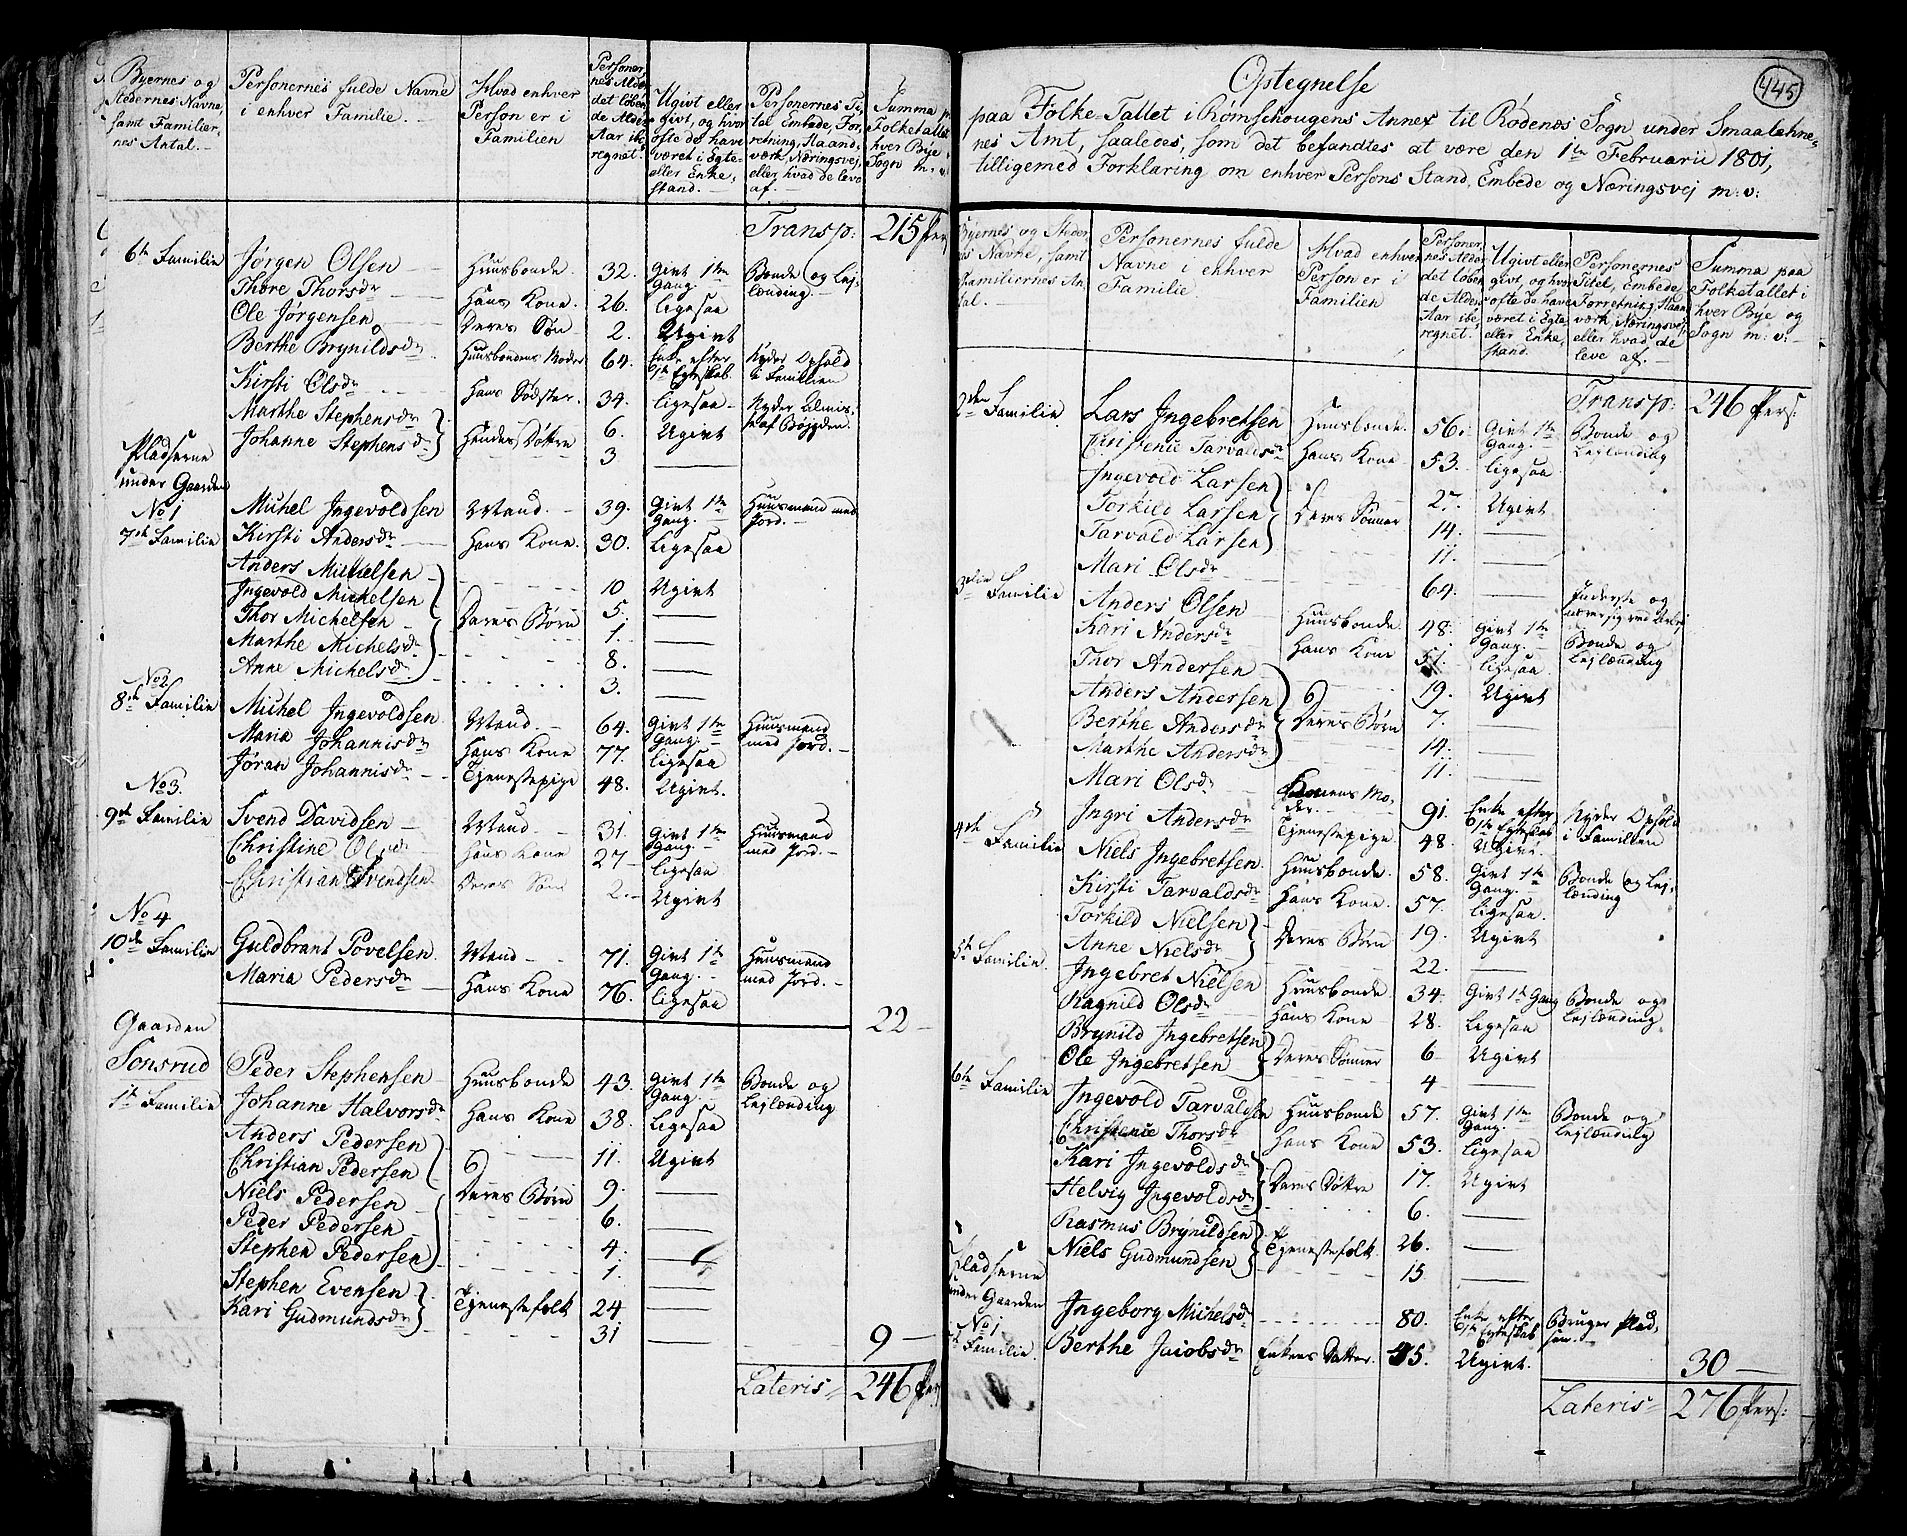 Byernes og Stedernes Navne, samt Familiernes Antal. | Personernes fulde Navne i enhver Familie. | Hvad enhver Person er i Familien | Personernes Alder det løbende Alders Aar iberegnet. | Ugivt eller givt, og hvor ofte de have været i Egte- eller Enke, stand. | Personernes Titel, Embede, Forretning, Haandværk, Næringsvej, eller hvad de leve af. | Summa paa Folketallet i hver Bye Sogn m:v:
Transp: 215 Pers
6te Familie Jørgen Olsen Huusbonde 32. Givt 1te Gang. Bonde og Lejlending.
Thore Thorsdr Hans Kone. 26. Ligesaa
Ole Jørgensen Deres Søn 2. Ugivt
Berthe Brynildsdr Huusbondens Moder 64. Enke efter 1te Egteskab. Nyder Ophold i Familien
Kirsti Olsdr Hans Sødster. 34. Ligesaa Nyder Almisse af Bøjgden.
Marthe Stephensdr Hendes Døttre 6. Ugivt
Johanne Stephensdr 3
Pladserne under Gaarden
No 1
7de Familie Michel Ingevoldsen Mand. 39. Givt 1te Gang. Huusmand med Jord.
Kirsti Andersdr Hans Kone. 30. Ligesaa
Anders Michelsen 10 Ugivt
Ingevold Michelsen 5.
Thor Michelsen Deres Børn 1.
Marthe Michelsdr 8.
Anne Michelsdr 3.
No 2
8de Familie Michel Ingevoldsen Mand. 64. Givt 1te Gang. Huusmand med Jord.
Maria Johannisdr Hans Kone 77. Ligesaa
Jøran Johannisdr Tjenestepige 48. Ugivt.
No 3.
9de Familie Svend Davidsen Mand. 31. Givt 1te Gang. Huusmand med Jord.
Christine Olsdr Hans Kone 27 Ligesaa
Christian Svendsen Deres Søn 2. Ugivt
No 4
10de Familie Guldbrant Povelsen Mand 71. Givt 1te Gang. Huusmand med Jord.
Maria Pedersdr Hans Kone 76. Ligesaa
22
Gaarden Sonsrud
1te Familie Peder Stephensen Huusbonde 43. Givt 1te Gang. Bonde og Lejlending
Johanne Halvorsdr Hans Kone 38. Ligesaa
Anders Pedersen 11. Ugivt
Christian Pedersen 9.
Niels Pedersen Deres Børn 6.
Peder Pedersen 4.
Stephen Pedersen 1.
Stephen Evensen Tjenestefolk 24
Kari Gudmundsdr 31
9
Lateris 246 Pers
445
Optegnelse
paa Folke-Tallet i Rømschougens Annex til Rødenæs Sogn under Smaalehne-
nes Amt, saaledes, som det befandtes at være den 1te Februarii 1801,
tilligemed Forklaring om enhver Persons Stand, Embede og Næringsvej m: v:
Byernes og Stedernes Navne, samt Familiernes Antal. | Personernes fulde Navne i enhver Familie | Hvad enhver Person er i Familien | Personernes Alder det løbende Alders Aar iberegnet. | Ugivt eller givt, og hvor ofte de have været i Egte- eller Enke, stand. | Personernes Titel, Embede, Forretning, Haandværk, Næringsvej, eller hvad de leve af. | Summa paa Folketallet i hver Bye og Sogn m: v:
Transp: 246 Pers:
2den Familie Lars Ingebretsen Huusbonde. 56. Givt 1te Gang. Bonde og Lejlending
Christenie Tarvaldsdr Hans Kone 53. Ligesaa
Ingevold Larsen 27. Ugivt
Torkild Larsen Deres Sønner 14.
Tarvald Larsen 11.
Mari Olsdr 64. Inderste og
3die Familie Anders Olsen Huusbonde 48. Givt 1te Gang. Bonde og Lejlending
Kari Andersdr Hans Kone 51. Ligesaa
Thor Andersen 19. Ugivt
Anders Andersen Deres Børn 7.
Berthe Andersdr 14.
Marthe Andersdr 11.
Mari Olsdr Moder. 91. Enke efter 1te Egteskab Nyder Ophold i Familien
Ingri Andersdr Tjenestepige 48. Ugivt.
4de Familie Niels Ingebretsen Huusbonde. 58. Givt 1te Gang. Bonde og Lejlending
Kirsti Tarvaldsdr Hans Kone. 57. Ligesaa.
Torkild Nielsen Deres Børn 19. Ugivt
Anne Nielsdr 22.
5te Familie. Ingebret Nielsen Huusbonde 34. Givt 1te Gang Bonde og Lejlending
Ragnild Olsdr Hans Kone 28. Ligesaa
Brynild Ingebretsen Deres Sønner 6 Ugivt
Ole Ingebretsen 4
6te Familie Ingevold Tarvaldsen Huusbonde 57. Givt 1te Gang. Bonde og Lejlending
Christenie Thorsdr Hans Kone 53. Ligesaa
Kari Ingevoldsdr Deres Døttre 17. Ugivt
Helvig Ingevoldsdr 6.
Rasmus Brynildsen Tjenestefolk 26.
Niels Gudmundsen 15
Pladserne under Gaarden
No 1
Familie. Ingeborg Michelsdr 80. Enke efter 1te Egteskab Bruger Pladsen.
Berthe Jacobsdr Enkens Datter. 45. Ugivt.
30
Lateris 276 Pers: